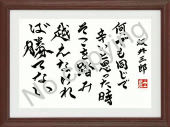 坂井三郎
何でも同じで
辛いと思った時
そこを踏み
越えなければ
ば勝てない
No Copying